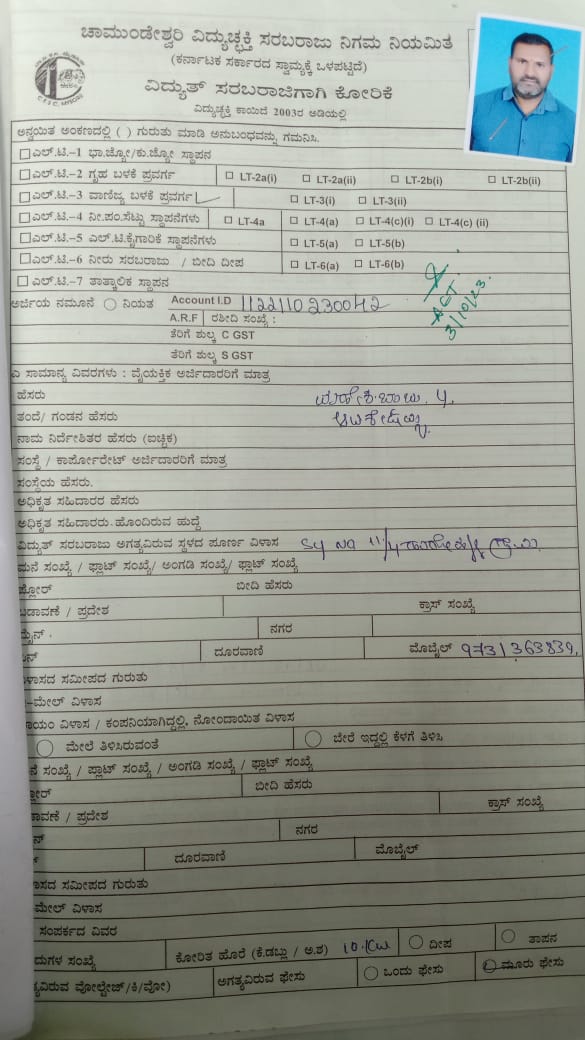 ಚಾಮುಂಡೇಶ್ವರಿ ವಿದ್ಯುಚ್ಛಕ್ತಿ ಸರಬರಾಜು ನಿಗಮ ನಿಯಮಿತ
(ಕರ್ನಾಟಕ ಸರ್ಕಾರದ ಸ್ವಾಮ್ಯಕ್ಕೆ ಒಳಪಟ್ಟಿದೆ)
ವಿದ್ಯುತ್ ಸರಬರಾಜಿಗಾಗಿ ಕೋರಿಕೆ
ವಿದ್ಯುಚ್ಛಕ್ತಿ ಕಾಯಿದೆ 2003ರ ಅಡಿಯಲ್ಲಿ
ಅನ್ವಯಿತ ಅಂಕಣದಲ್ಲಿ ( ) ಗುರುತು ಮಾಡಿ ಅನುಬಂಧವನ್ನು ಗಮನಿಸಿ.
ಎಲ್.ಟಿ.–1 ಭಾ.ಜ್ಯೋ/ಕು.ಜ್ಯೋ ಸ್ಥಾಪನ
ಎಲ್.ಟಿ.–2 ಗೃಹ ಬಳಕೆ ಪ್ರವರ್ಗ LT-2a(i) LT-2a(ii) LT-2b(i) LT-2b(ii)
ಎಲ್.ಟಿ.–3 ವಾಣಿಜ್ಯ ಬಳಕೆ ಪ್ರವರ್ಗ LT-3(i) LT-3(ii)
ಎಲ್.ಟಿ.–4 ನೀ.ಪಂ.ಸೆಟ್ಟು ಸ್ಥಾಪನೆಗಳು LT-4a LT-4(a) LT-4(c)(i) LT-4(c) (ii)
ಎಲ್.ಟಿ.–5 ಎಲ್.ಟಿ.ಕೈಗಾರಿಕೆ ಸ್ಥಾಪನೆಗಳು LT-5(a) LT-5(b)
ಎಲ್.ಟಿ.–6 ನೀರು ಸರಬರಾಜು / ಬೀದಿ ದೀಪ LT-6(a) LT-6(b)
ಎಲ್.ಟಿ.–7 ತಾತ್ಕಾಲಿಕ ಸ್ಥಾಪನ
ACT.
3/10/23.
ಅರ್ಜಿಯ ನಮೂನೆ ನಿಯತ Account I.D 1122110230042
A.R.F ರಶೀದಿ ಸಂಖ್ಯೆ :
ತೆರಿಗೆ ಶುಲ್ಕ C GST
ತೆರಿಗೆ ಶುಲ್ಕ S GST
ಎ ಸಾಮಾನ್ಯ ವಿವರಗಳು : ವೈಯಕ್ತಿಕ ಅರ್ಜಿದಾರರಿಗೆ ಮಾತ್ರ
ಹೆಸರು
ತಂದೆ/ ಗಂಡನ ಹೆಸರು
ನಾಮ ನಿರ್ದೇಶಿತರ ಹೆಸರು (ಐಚ್ಛಿಕ)
ಸಂಸ್ಥೆ / ಕಾರ್ಪೋರೇಟ್ ಅರ್ಜಿದಾರರಿಗೆ ಮಾತ್ರ
ಸಂಸ್ಥೆಯ ಹೆಸರು.
ಅಧಿಕೃತ ಸಹಿದಾರರ ಹೆಸರು
ಅಧಿಕೃತ ಸಹಿದಾರರು ಹೊಂದಿರುವ ಹುದ್ದೆ
ವಿದ್ಯುತ್ ಸರಬರಾಜು ಅಗತ್ಯವಿರುವ ಸ್ಥಳದ ಪೂರ್ಣ ವಿಳಾಸ Sy No 11/4
ಮನೆ ಸಂಖ್ಯೆ / ಫ್ಲಾಟ್ ಸಂಖ್ಯೆ/ ಅಂಗಡಿ ಸಂಖ್ಯೆ/ ಫ್ಲಾಟ್ ಸಂಖ್ಯೆ
ಫ್ಲೋರ್ ಬೀದಿ ಹೆಸರು
ಬಡಾವಣೆ / ಪ್ರದೇಶ ಕ್ರಾಸ್ ಸಂಖ್ಯೆ
ಮೈನ್ . ನಗರ
ದೂರವಾಣಿ ಮೊಬೈಲ್ 9731363839.
ವಿಳಾಸದ ಸಮೀಪದ ಗುರುತು
ಇ–ಮೇಲ್ ವಿಳಾಸ
ಖಾಯಂ ವಿಳಾಸ / ಕಂಪನಿಯಾಗಿದ್ದಲ್ಲಿ, ನೋಂದಾಯಿತ ವಿಳಾಸ
ಮೇಲೆ ತಿಳಿಸಿರುವಂತೆ ಬೇರೆ ಇದ್ದಲ್ಲಿ ಕೆಳಗೆ ತಿಳಿಸಿ
ನೆ ಸಂಖ್ಯೆ / ಪ್ಲಾಟ್ ಸಂಖ್ಯೆ / ಅಂಗಡಿ ಸಂಖ್ಯೆ / ಫ್ಲಾಟ್ ಸಂಖ್ಯೆ
ಲೋರ್ ಬೀದಿ ಹೆಸರು
ಡಾವಣೆ / ಪ್ರದೇಶ ಕ್ರಾಸ್ ಸಂಖ್ಯೆ
ನ್ ನಗರ
ದೂರವಾಣಿ ಮೊಬೈಲ್
ಾಸದ ಸಮೀಪದ ಗುರುತು
–ಮೇಲ್ ವಿಳಾಸ
ಸಂಪರ್ಕದ ವಿವರ
ದುಗಳ ಸಂಖ್ಯೆ ಕೋರಿತ ಹೊರೆ (ಕೆ.ಡಬ್ಲು / ಅ.ಶ) 10.KW ದೀಪ ತಾಪನ
ತ್ಯವಿರುವ ವೋಲ್ಟೇಜ್/ಕಿ/ವೋ) ಅಗತ್ಯವಿರುವ ಫೇಸು ಒಂದು ಫೇಸು ಮೂರು ಫೇಸು